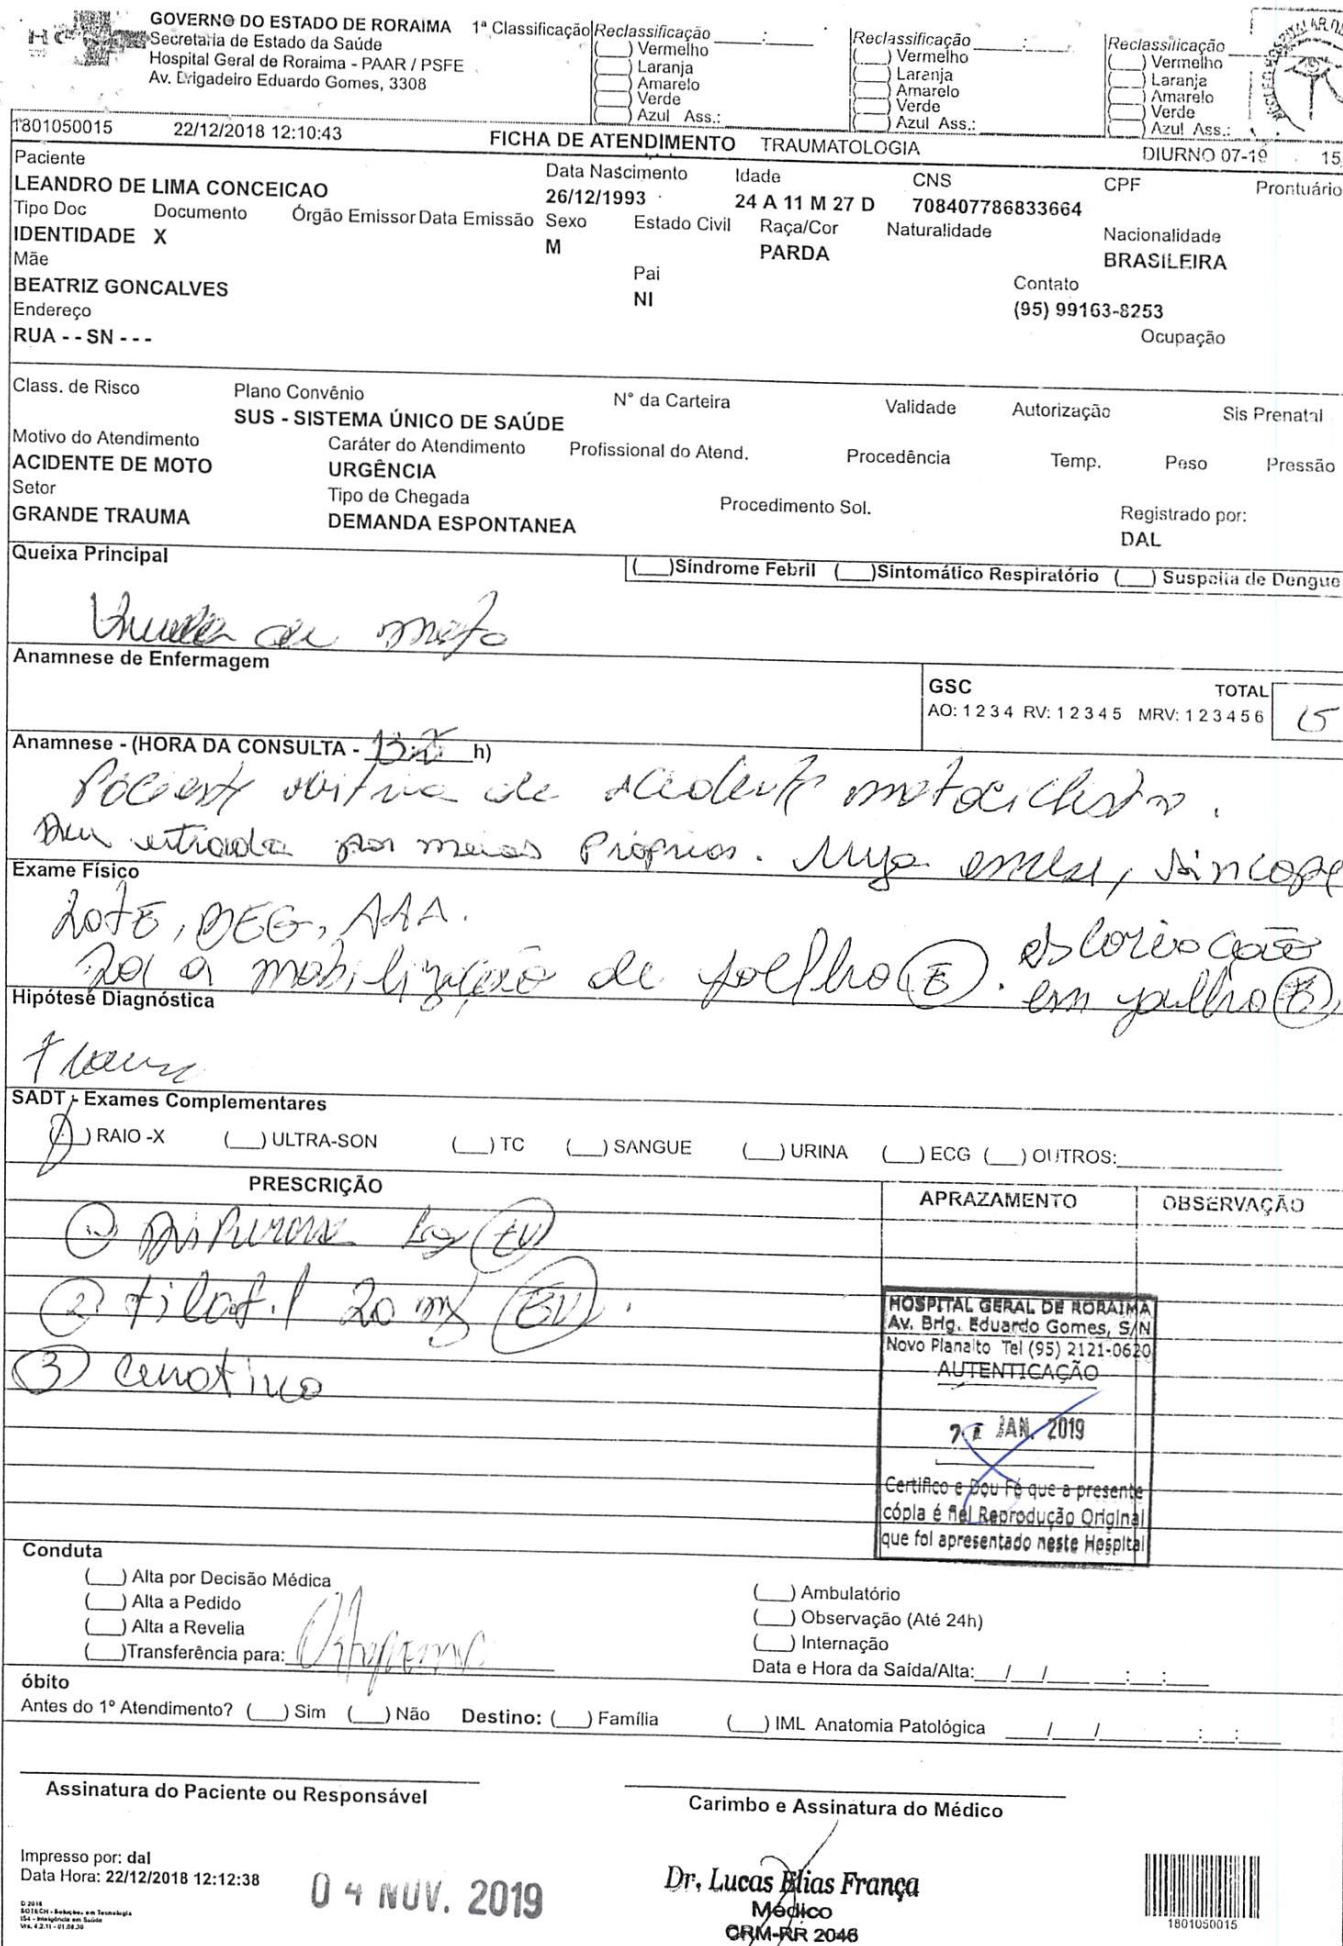 GOVERNO DO ESTADO DE RORAIMA
Secretaria de Estado da Saúde
Hospital Geral de Roraima - PAAR / PSFE
Av. Brigadeiro Eduardo Gomes, 3308
1ª Classificação
Reclassificação ____:____
(___) Vermelho
(___) Laranja
(___) Amarelo
(___) Verde
(___) Azul Ass.:
Reclassificação ____:____
(___) Vermelho
(___) Laranja
(___) Amarelo
(___) Verde
(___) Azul Ass.:
Reclassificação
(___) Vermelho
(___) Laranja
(___) Amarelo
(___) Verde
(___) Azul Ass.:
1801050015 22/12/2018 12:10:43 FICHA DE ATENDIMENTO TRAUMATOLOGIA DIURNO 07-19 15
Paciente Data Nascimento Idade CNS CPF Prontuário
LEANDRO DE LIMA CONCEICAO 26/12/1993 24 A 11 M 27 D 708407786833664
Tipo Doc Documento Órgão Emissor Data Emissão Sexo Estado Civil Raça/Cor Naturalidade Nacionalidade
IDENTIDADE X M PARDA BRASILEIRA
Mãe Pai Contato
BEATRIZ GONCALVES NI (95) 99163-8253
Endereço Ocupação
RUA - - SN - - -
Class. de Risco Plano Convênio N° da Carteira Validade Autorização Sis Prenatal
SUS - SISTEMA ÚNICO DE SAÚDE
Motivo do Atendimento Caráter do Atendimento Profissional do Atend. Procedência Temp. Peso Pressão
ACIDENTE DE MOTO URGÊNCIA
Setor Tipo de Chegada Procedimento Sol. Registrado por:
GRANDE TRAUMA DEMANDA ESPONTANEA DAL
Queixa Principal (___)Síndrome Febril (___)Sintomático Respiratório (___) Suspeita de Dengue
de moto
Anamnese de Enfermagem
GSC TOTAL
AO: 1 2 3 4 RV: 1 2 3 4 5 MRV: 1 2 3 4 5 6 15
Anamnese - (HORA DA CONSULTA - h)
Paciente vítima de acidente motociclistico.
Deu entrada por meios próprios. Nega emese, síncope
Exame Físico
LOTE, BEG, AAA.
Dor a mobilização de joelho (E). escoriação
em joelho (E).
Hipótese Diagnóstica
Trauma
SADT - Exames Complementares
( ) RAIO -X (___) ULTRA-SON (___) TC (___) SANGUE (___) URINA (___) ECG (___) OUTROS:
PRESCRIÇÃO APRAZAMENTO OBSERVAÇÃO
① Dipirona (EV)
② tilatil 20 mg (EV).
③
HOSPITAL GERAL DE RORAIMA
Av. Brig. Eduardo Gomes, S/N
Novo Planalto Tel (95) 2121-0620
AUTENTICAÇÃO
JAN. 2019
Certifico e Dou Fé que a presente
cópia é fiel Reprodução Original
que foi apresentado neste Hospital
Conduta
(___) Alta por Decisão Médica
(___) Alta a Pedido
(___) Alta a Revelia
(___)Transferência para: Ortopedia
(___) Ambulatório
(___) Observação (Até 24h)
(___) Internação
Data e Hora da Saída/Alta: ___/___/___ ___:___:___
óbito
Antes do 1º Atendimento? (___) Sim (___) Não Destino: (___) Família (___) IML Anatomia Patológica ___/___/___ ___:___:___
Assinatura do Paciente ou Responsável
Carimbo e Assinatura do Médico
Impresso por: dal
Data Hora: 22/12/2018 12:12:38
04 NOV. 2019
Dr. Lucas Elias França
Médico
CRM-RR 2046
1801050015